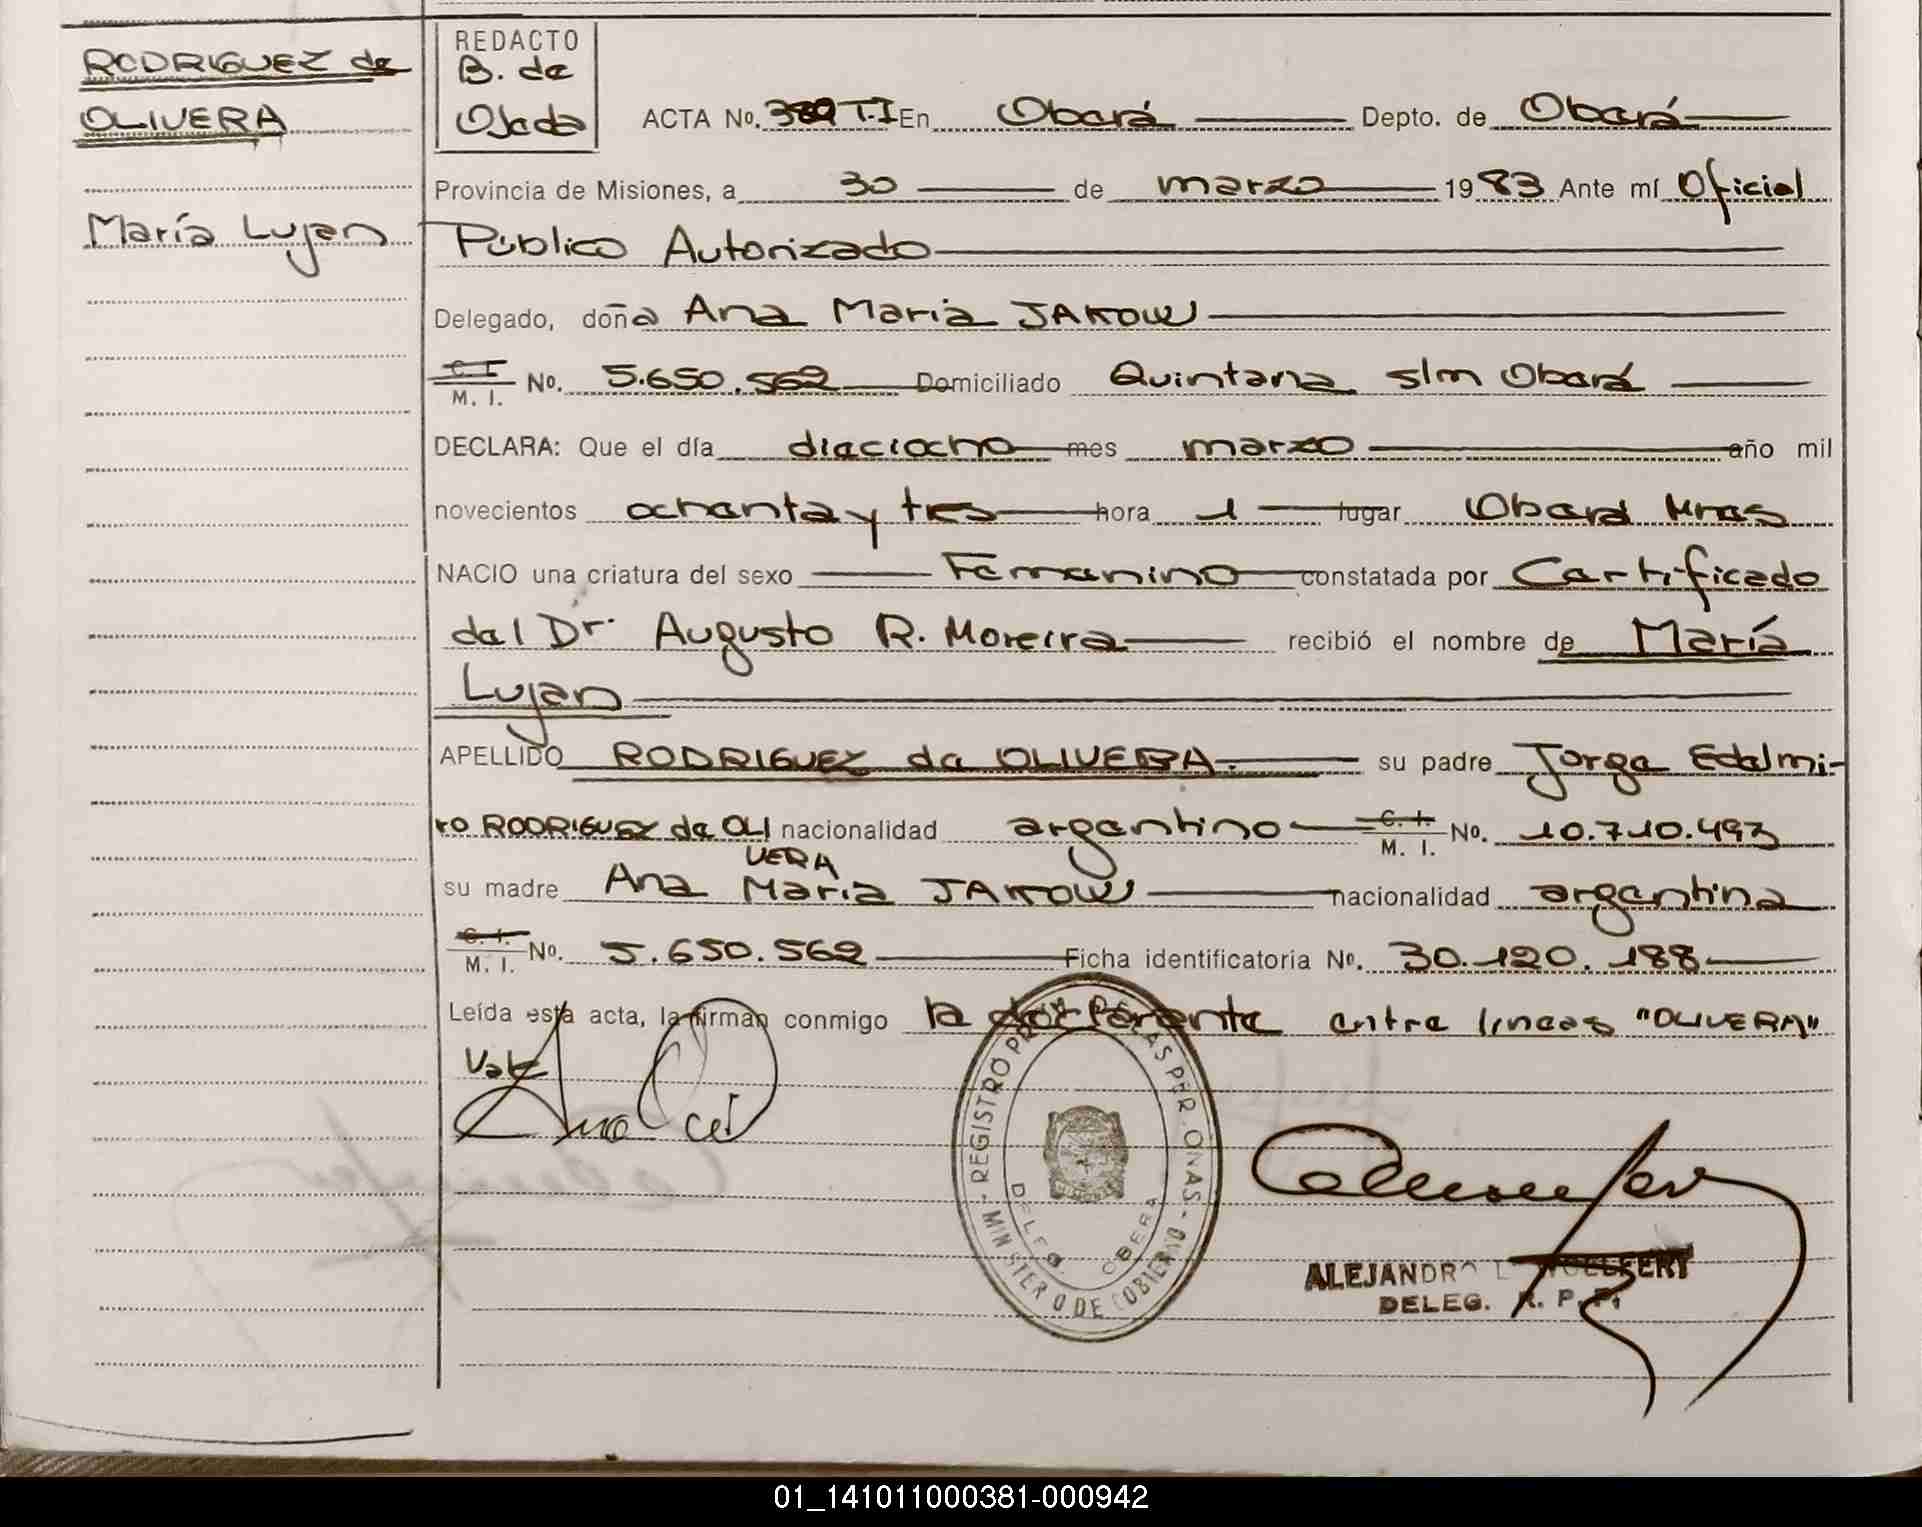 RODRIGUEZ de
OLIVERA
María Lujan
REDACTO
B. de
Ojeda
ACTA No. 389 T.I En Oberá Depto. de Oberá
Provincia de Misiones, a 30 de marzo 1983 Ante mí Oficial
Público Autorizado
Delegado, doña Ana Maria JAKOW
C. I. M. I. No. 5.650.562 Domiciliado Quintana s/n Oberá
DECLARA: Que el día dieciocho mes marzo año mil
novecientos ochenta y tres hora 1 lugar Oberá Mnes
NACIO una criatura del sexo Femenino constatada por Certificado
del Dr. Augusto R. Moreira recibió el nombre de María
Lujan
APELLIDO RODRIGUEZ de OLIVERA. su padre Jorge Edelmi-
ro RODRIGUEZ de OLI nacionalidad argentino C. I. M. I. No. 10.710.493
VERA
su madre Ana Maria JAKOW nacionalidad argentina
C. I. M. I. No. 5.650.562 Ficha identificatoria No. 30.120.188
Leída esta acta, la firman conmigo la entre lineas "OLIVERA"
Vale
REGISTRO PERSONAS - MINISTERIO DE GOBIERNO
DELEG OBERA
ALEJANDRO L. WOELFERT
DELEG. R. P. P.
01_141011000381-000942